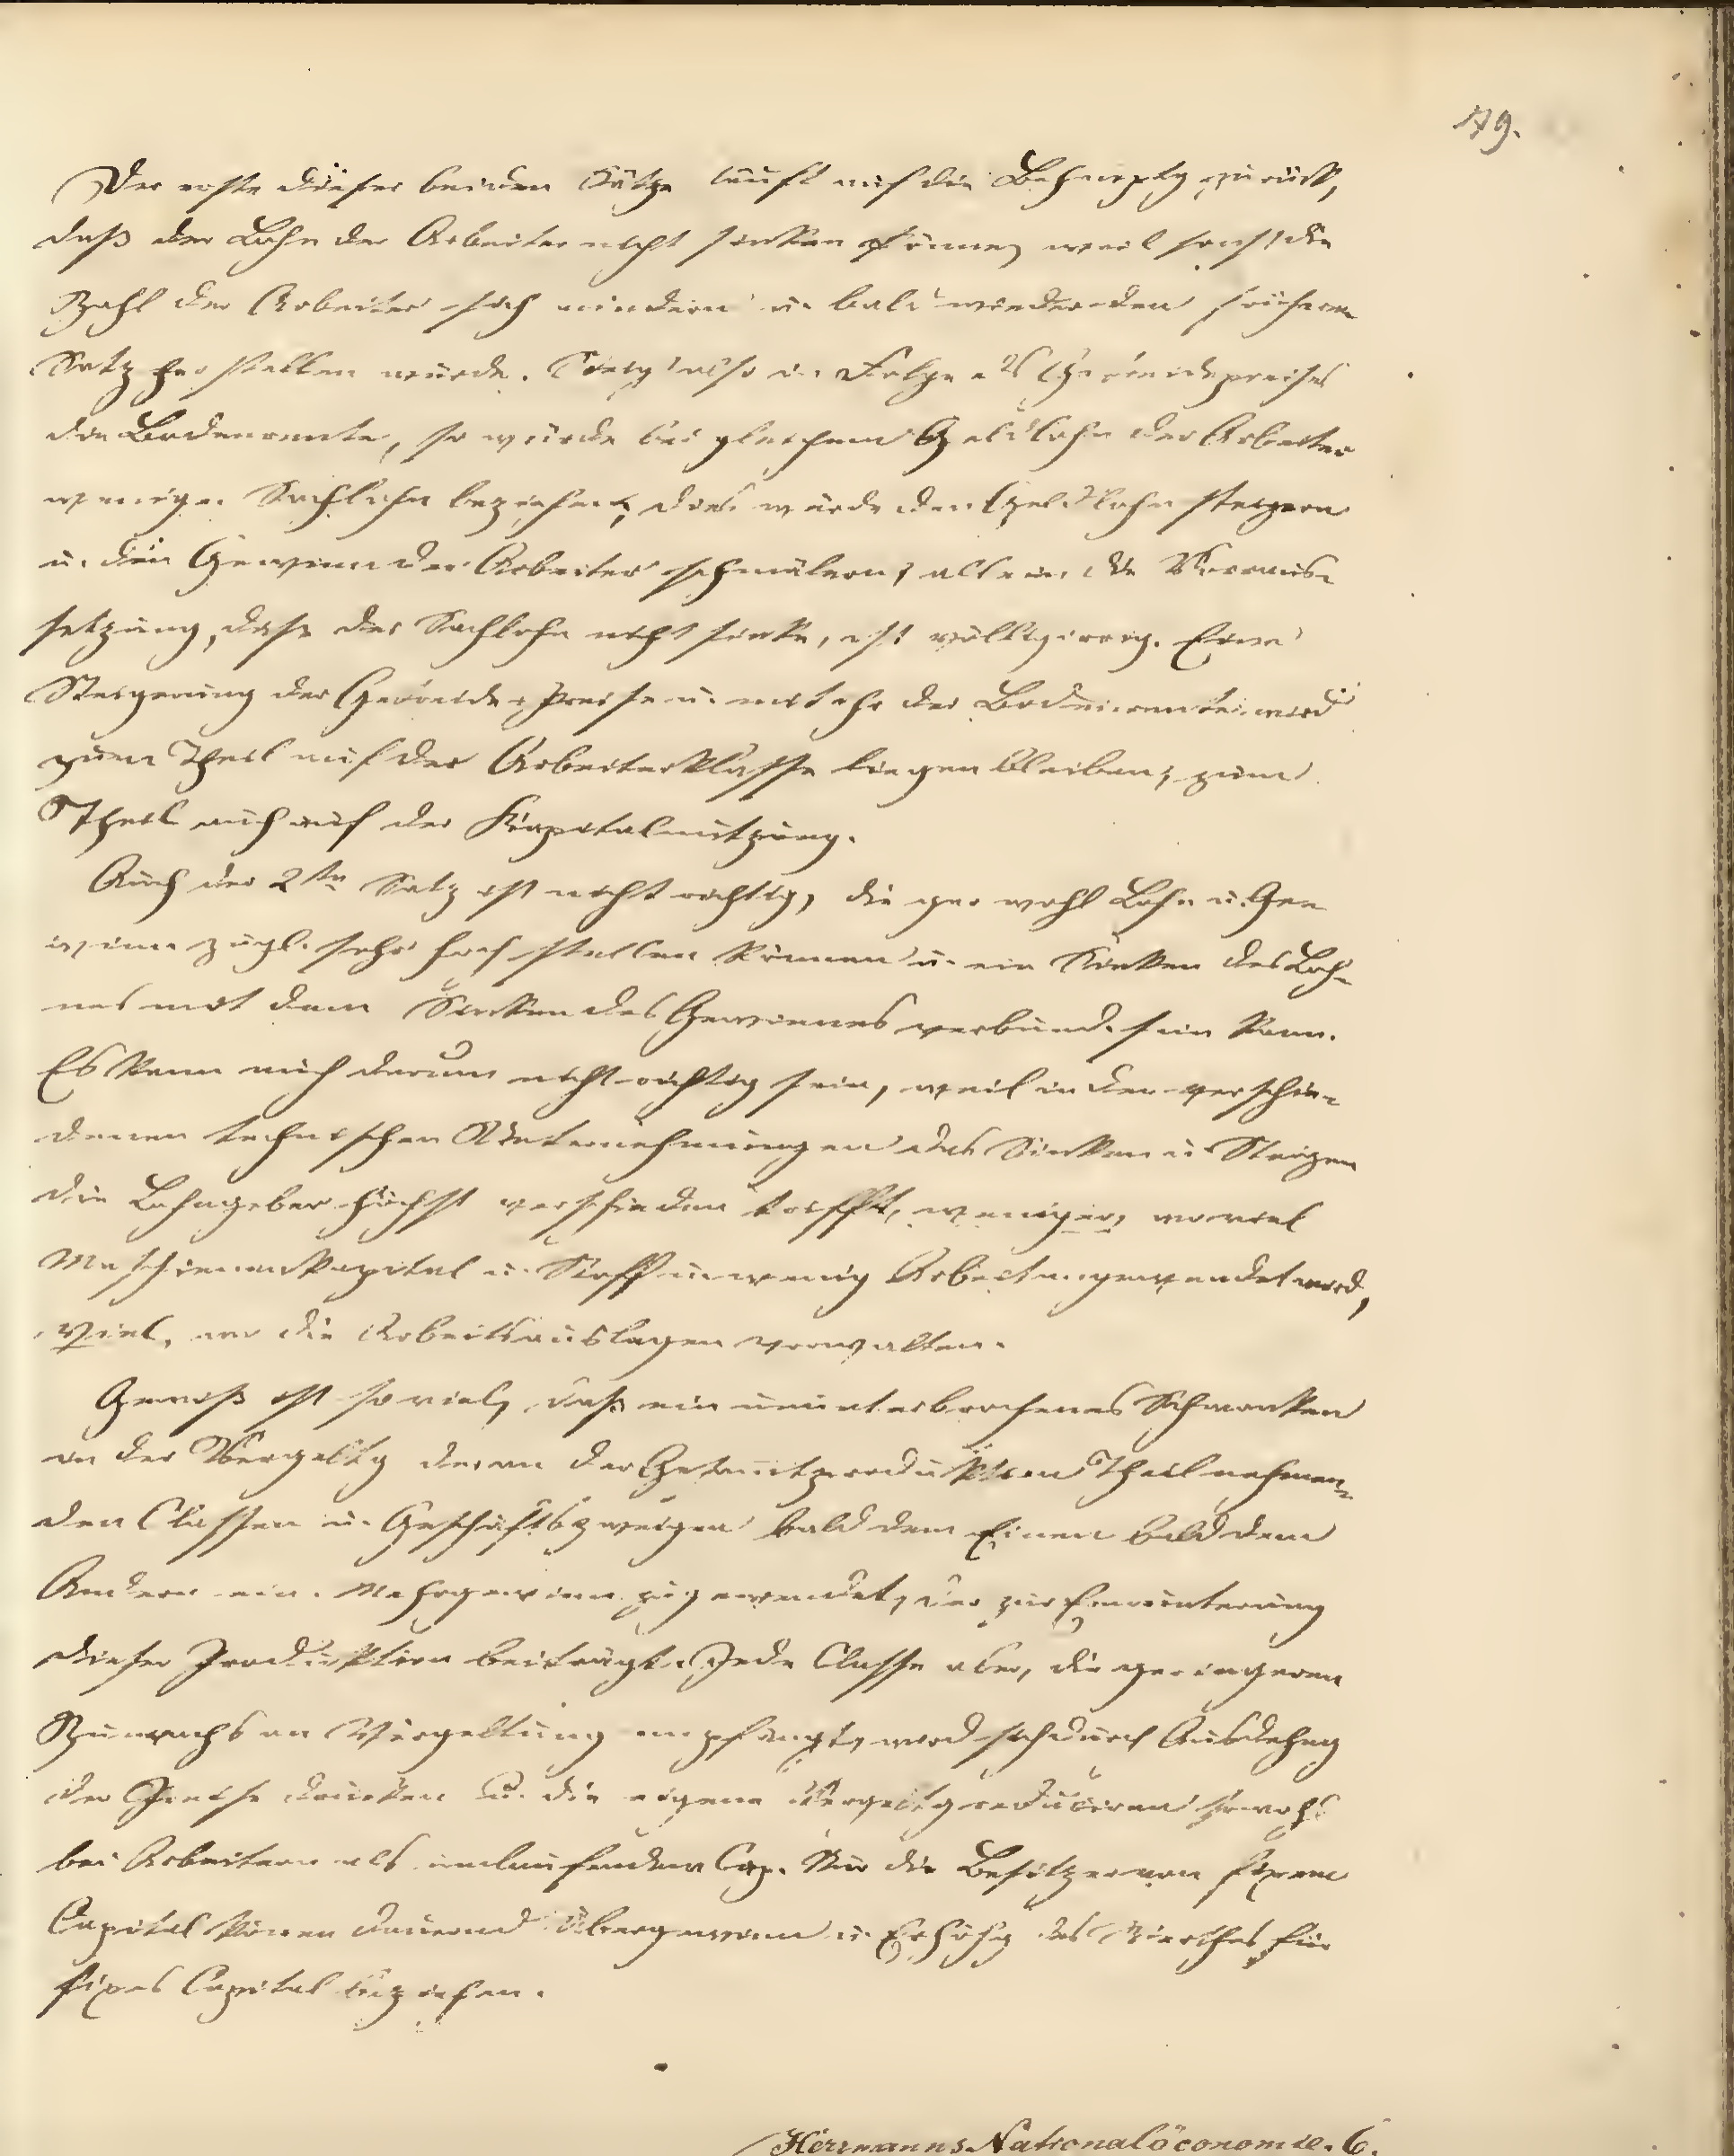 179.
Der erste dieser beiden Sätze läuft auf die Behauptg zurück,
daß der Lohn der Arbeiter nicht sinken könne, weil sonst die
Zahl der Arbeiter sich mindern u. bald wieder den früheren
Satz herstellen würde. Steigt also in Folge des Getreidepreises
die Bodenrente, so würde bei gleichem Geldlohn der Arbeiter
weniger Sachlohn beziehen, dies würde den Geldlohn steigern
u. den Gewinn der Arbeiter schmälern; allein die Voraus-
setzung, dass der Sachlohn nicht sinke, ist völlig irrig. Eine
Steigerung der Getreide-Preise u. mit ihr der Bodenrente wird
zum Theil auf der Arbeiterklasse liegen bleiben; zum
Theil auch auf der Kapitalnutzung.
Auch der 2te Satz ist nicht richtig, da gar wohl Lohn u. Ge-
winn zugl. sehr hoch stellen können u. ein Sinken des Loh-
nes mit dem Sinken des Gewinnes verbund. sein kann.
Es kann auch darum nicht richtig sein, weil in den verschie-
denen technischen Unternehmungen das Sinken u. Steigen
die Lohngeber höchst verschieden trifft, weniger, wo viel
Maschienenkapital u. Stoff u. wenig Arbeit angewendet wird,
viel, wo die Arbeitsauslagen vorwalten.
Gewiß ist so viel, daß ein ununterbrochenes Schwanken
in der Vergeltg der an der Gesamtproduktion Theilnehmen-
den Classen u. Geschäftszweigen bald dem Einen bald dem
Andern ein. Mehrgewinn zugewendet, der zur Ermunterung
dieser Production beiträgt. Jede Classe aber, die geringeren
Zuwachs an Vergeltung empfängt, wird sich durch Ausdehng
der Preise drücken u. die eigene Vergeltg reduciren sowohl
bei Arbeitern als umlaufendem Cap. Nur die Besitzer von fixem
Capital können dauernd Übergewinn u. Erhöhg des Werthes für
fixes Capital beziehen.
Herrmanns Nationalöconomie. 6.